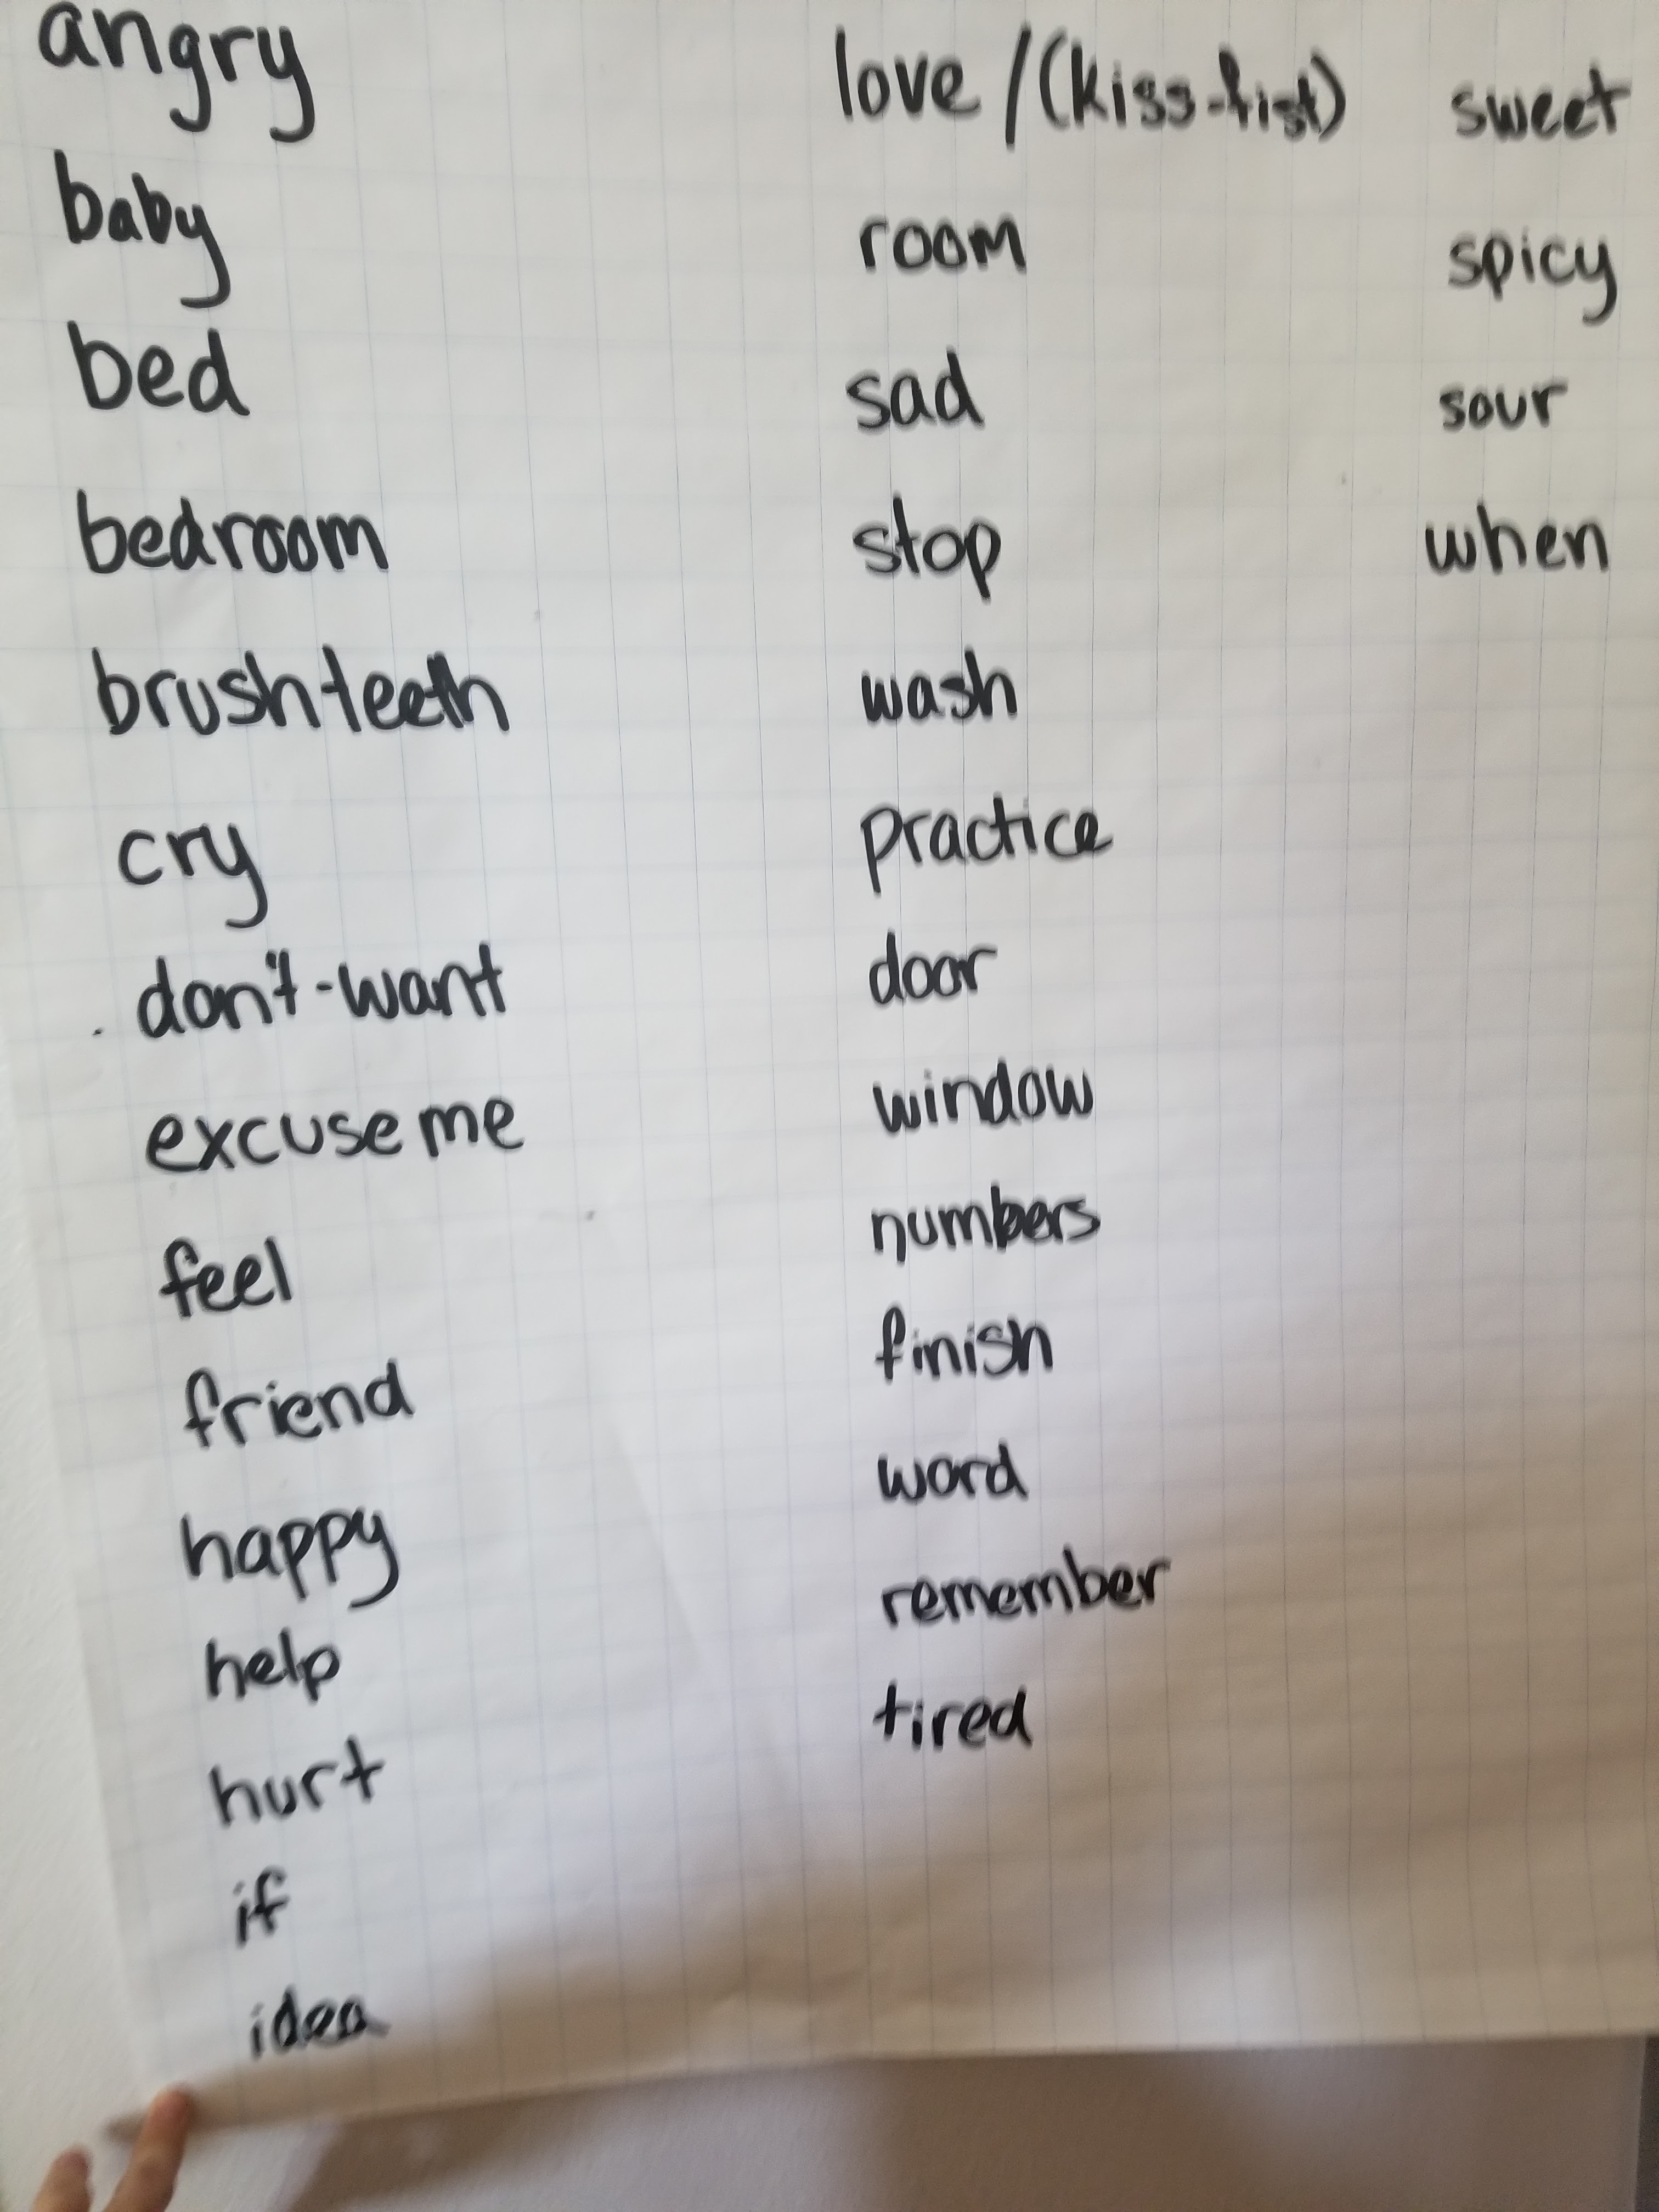 angry
baby
bed
bedroom
brush teeth
cry
don't-want
excuse me
feel
friend
happy
help
hurt
if
idea
love / (kiss-fist)
room
sad
stop
wash
practice
door
window
numbers
finish
word
remember
tired
sweet
spicy
sour
when